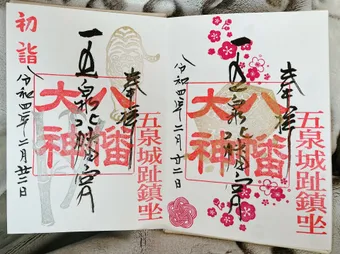 奉拝
五泉城趾鎮坐
八幡
大神
五泉八幡宮
令和四年二月廿二日
奉拝
五泉城趾鎮坐
八幡
大神
五泉八幡宮
令和四年二月廿二日
初詣